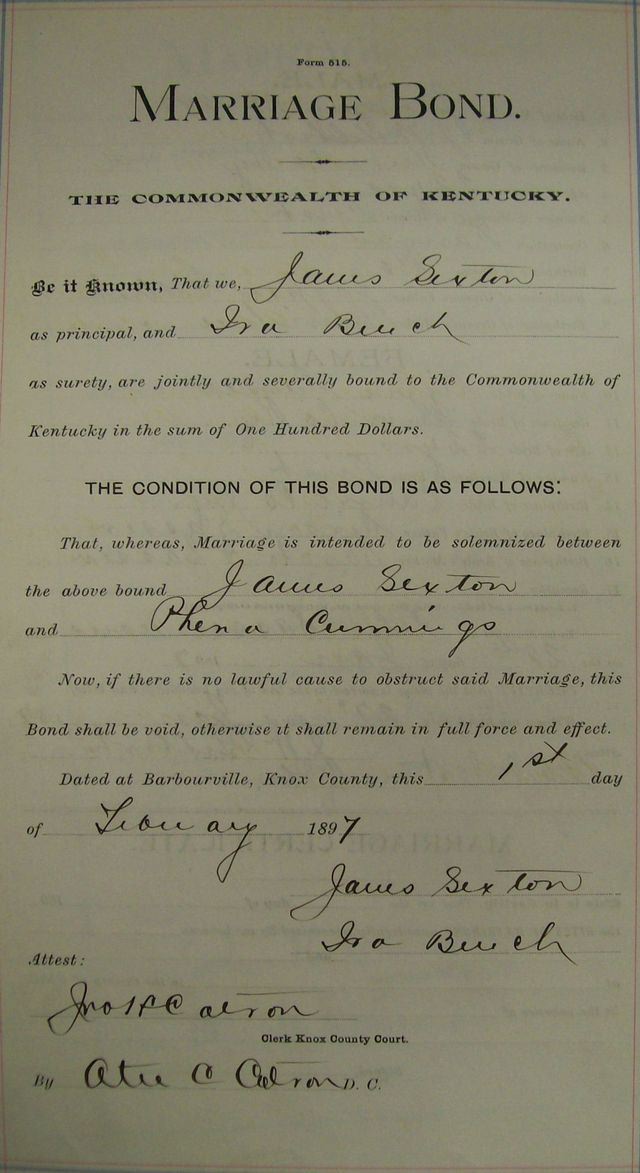 Form 515.
MARRIAGE BOND.
THE COMMONWEALTH OF KENTUCKY.
Be it Known, That we, James Sexton
as principal, and Ira Bunch
as surety, are jointly and severally bound to the Commonwealth of
Kentucky in the sum of One Hundred Dollars.
THE CONDITION OF THIS BOND IS AS FOLLOWS:
That, whereas, Marriage is intended to be solemnized between
the above bound James Sexton
and Phena Cummings
Now, if there is no lawful cause to obstruct said Marriage, this
Bond shall be void, otherwise it shall remain in full force and effect.
Dated at Barbourville, Knox County, this 1st day
of February 1897
James Sexton
Ira Bunch
Attest:
Jno H C Catron
Clerk Knox County Court.
By C Catron D. C.